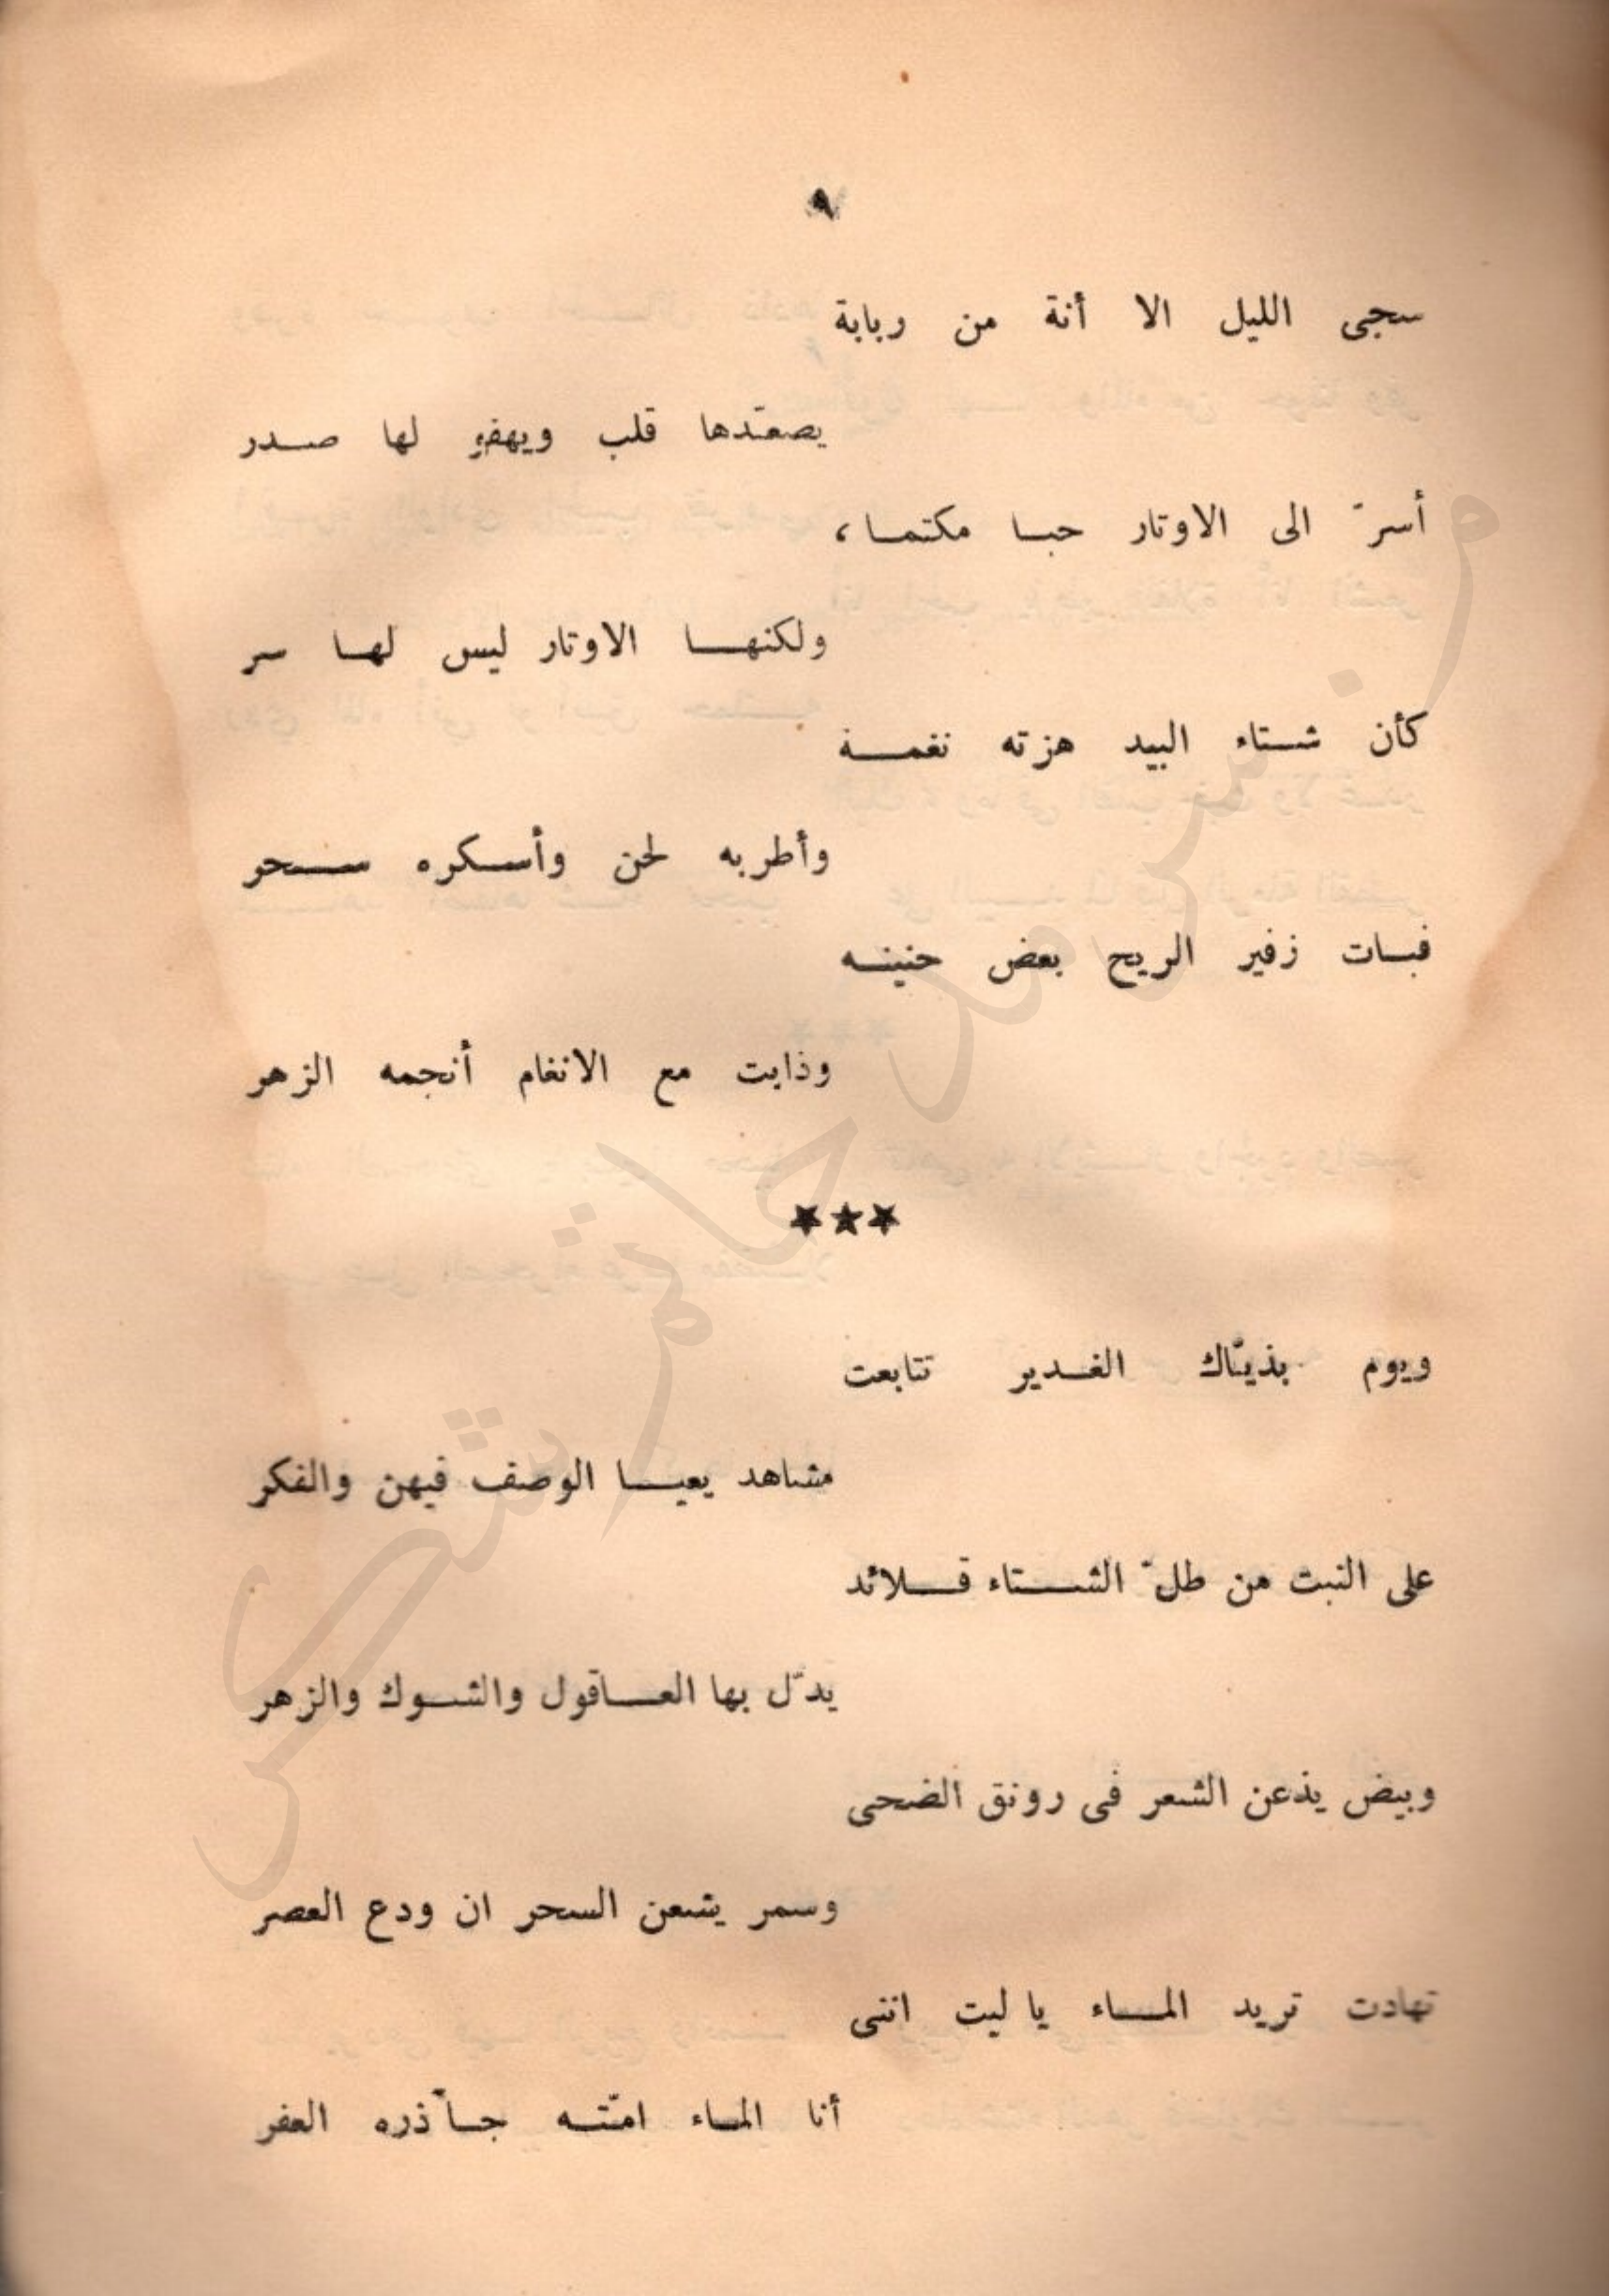 ٩
سجى الليل الا أنة من ربابة
يصعّدها قلب ويهفو لها صدر
أسرّ الى الاوتار حبا مكتما،
ولكنها الاوتار ليس لها سر
كأن شتاء البيد هزته نغمة
وأطربه لحن وأسكره سحر
فبات زفير الريح بعض حنينه
وذابت مع الانغام أنجمه الزهر
★★★
ويوم بذيّاك الغدير تتابعت
مشاهد يعيا الوصف فيهن والفكر
على النبت من طلّ الشتاء قلائد
يدلّ بها العاقول والشوك والزهر
وبيض يذعن الشعر فى رونق الضحى
وسمر يشعن السحر ان ودع العصر
تهادت تريد الماء يا ليت اننى
أنا الماء امّته جآذره العفر